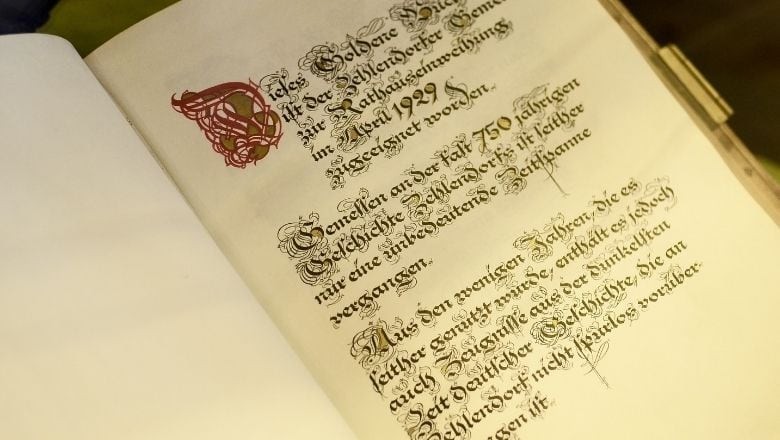 Dieses Goldene Buch
ist der Zehlendorfer Geme
zur Rathauseinweihung
im April 1929
zugeeignet worden.
Gemessen an der fast 750 jährigen
Geschichte Zehlendorfs ist seither
nur eine unbedeutende Zeitspanne
vergangen.
Aus den wenigen Jahren, die es
seither genutzt wurde, enthält es jedoch
auch Zeugnisse aus der dunkelsten
Zeit deutscher Geschichte, die an
Zehlendorf nicht spurlos vorüber-
gangen ist.